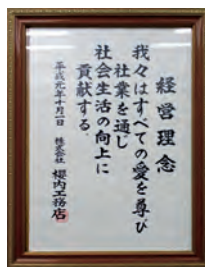 経営理念
我々はすべての愛を尊び
社業を通し
社会生活の向上に
貢献する。
平成元年十月一日
株式会社 櫻内工務店